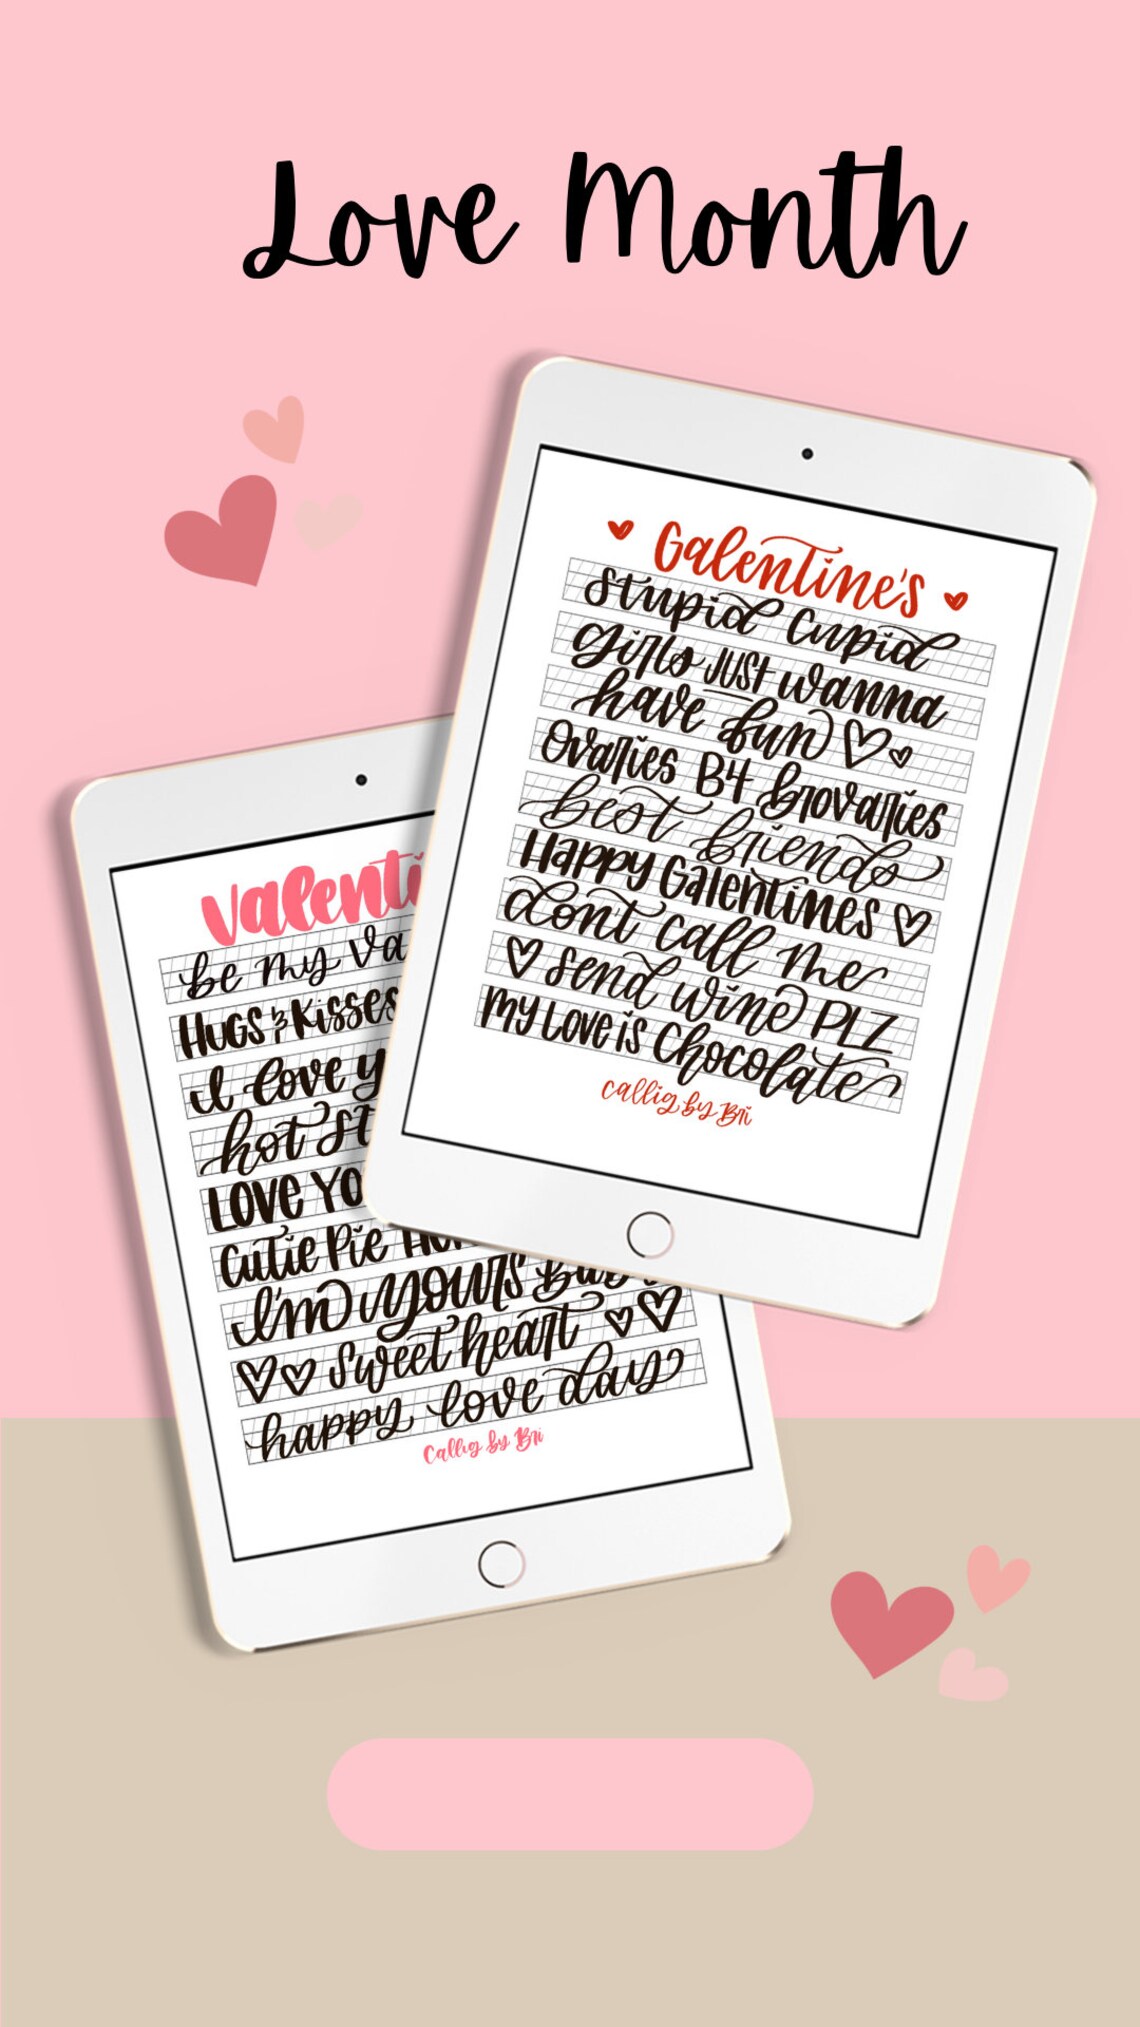 Love Month
Galentine's
Stupid Cupid
girls JUST wanna
have fun
Ovaries B4 Brovaries
best friends
Happy Galentines
dont call me
send wine PLZ
My Love is Chocolate
Callig by Bri
be my
HUGS & Kisses
I love
hot
LOVE
Cutie Pie
I'm yours
Sweet heart
happy love day
Callig by Bri